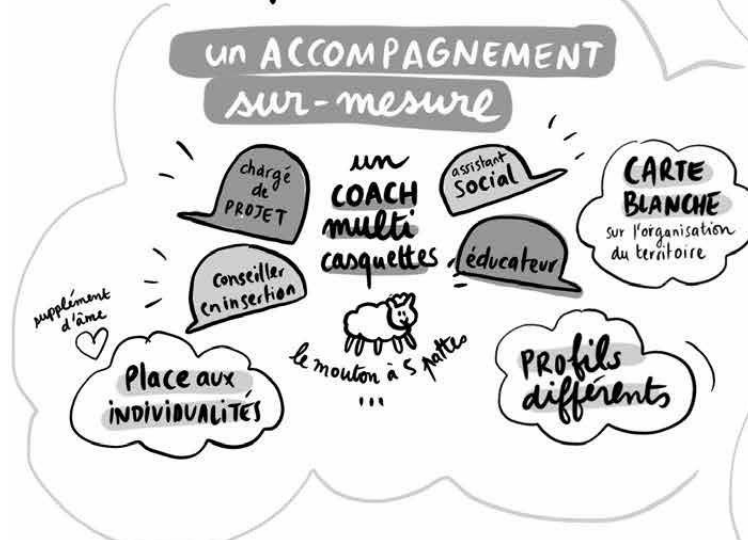 un ACCOMPAGNEMENT
sur-mesure
chargé
de
PROJET
un
COACH
multi
casquettes
assistant
social
CARTE
BLANCHE
sur l'organisation
du territoire
Conseiller
en insertion
éducateur
supplément
d'âme
le mouton à 5 pattes
...
Place aux
INDIVIDUALITÉS
PROfils
différents